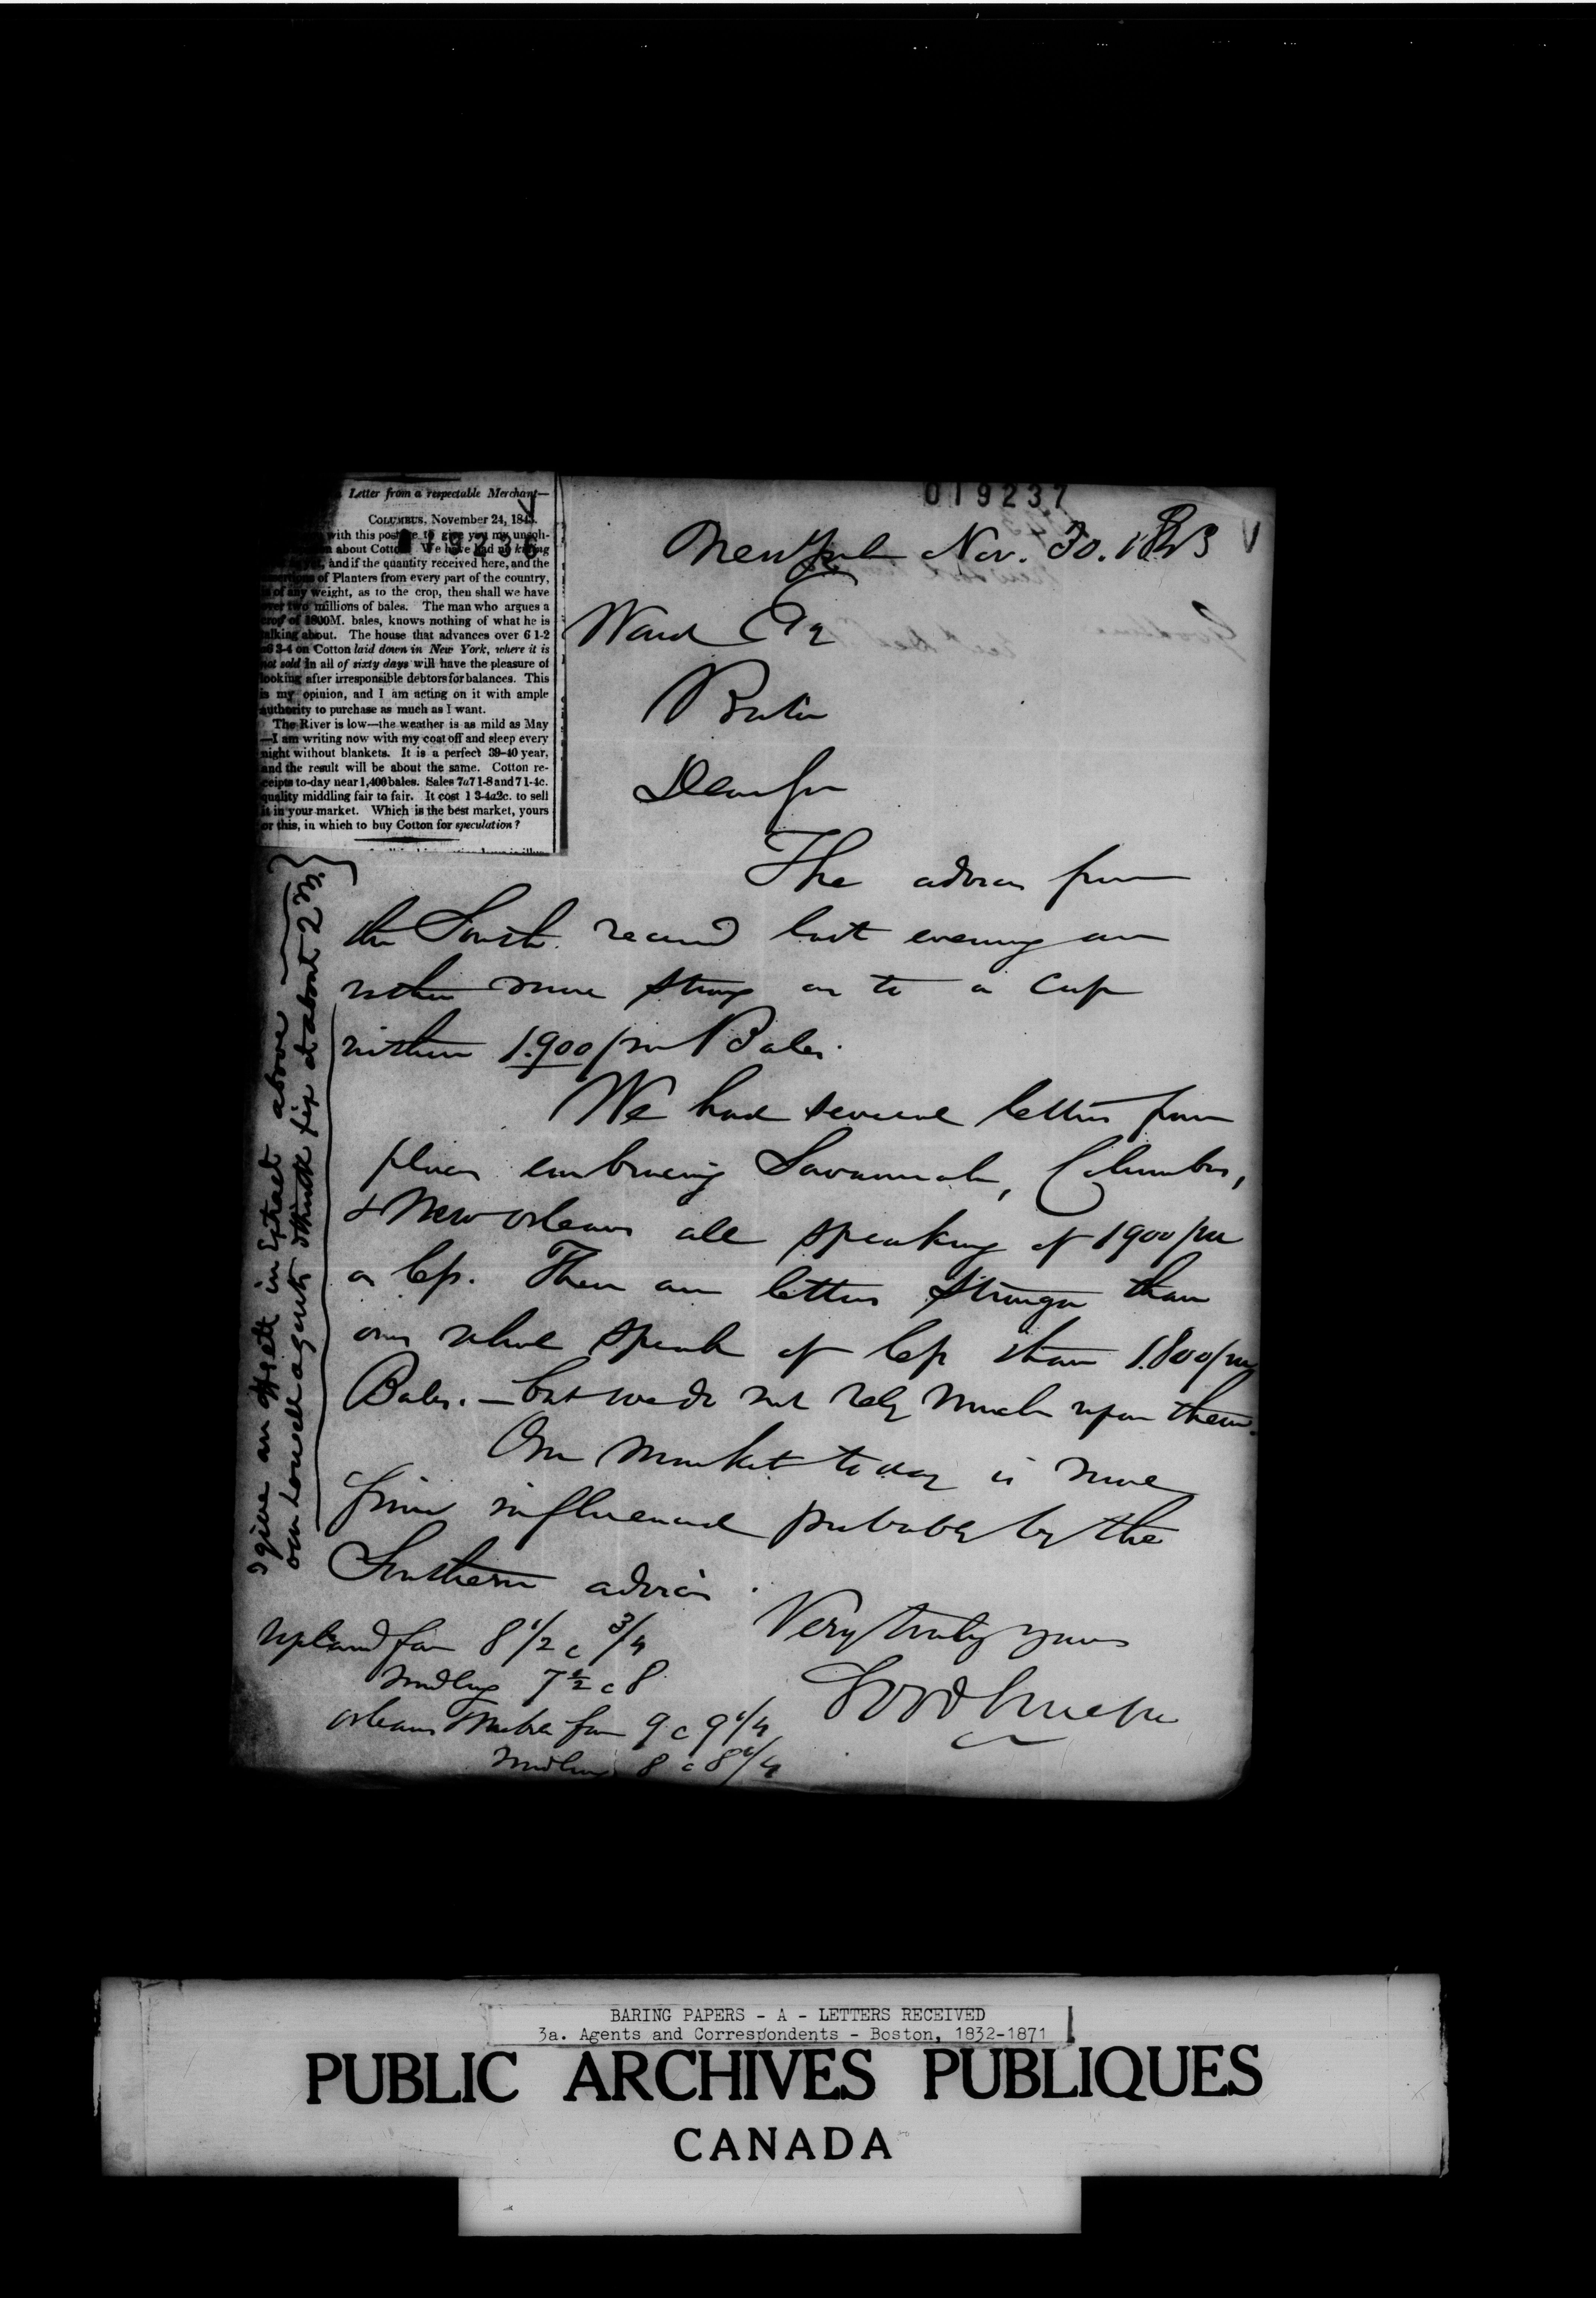 Letter from a respectable Merchant—
COLUMBUS, November 24, 184
with this postage to give you my unsoli-
about Cotton. We have had no killing
and if the quantity received here, and the
of Planters from every part of the country,
of any weight, as to the crop, then shall we have
over two millions of bales. The man who argues a
crop of 1800M. bales, knows nothing of what he is
talking about. The house that advances over 6 1-2
a6 3-4 on Cotton laid down in New York, where it is
not sold in all of sixty days will have the pleasure of
looking after irresponsible debtors for balances. This
is my opinion, and I am acting on it with ample
authority to purchase as much as I want.
The River is low—the weather is as mild as May
—I am writing now with my coat off and sleep every
night without blankets. It is a perfect 39-40 year,
and the result will be about the same. Cotton re-
ceipts to-day near 1,400 bales. Sales 7a7 1-8 and 7 1-4c.
quality middling fair to fair. It cost 1 3-4a2c. to sell
it in your market. Which is the best market, yours
or this, in which to buy Cotton for speculation?
019236
019237
New York Nov. 30. 1843
Ward Esq
Boston
Dear Sir
The advices from
the South received last evening are
rather more strong as to a Crop
within 1.900/m Bales.
We had several letters from
places embracing Savannah, Columbus,
& New Orleans all speaking of 1900/m
or less. There are letters stronger than
ours which speak of less than 1.800/m
Bales. — but we do not rely much upon them.
Our market today is more
firm influenced probably by the
Southern advices.
Very truly yours
Goodhue &
Upland fair 8 1/2 a 3/4
Midling 7 1/2 a 8
Orleans Mobile fair 9 a 9 1/4
Midling 8 a 8 1/4
I give an offsett in Extract above
our Lowell agents think fix at about 2 M.
BARING PAPERS - A - LETTERS RECEIVED
3a. Agents and Correspondents - Boston, 1832-1871
PUBLIC ARCHIVES PUBLIQUES
CANADA